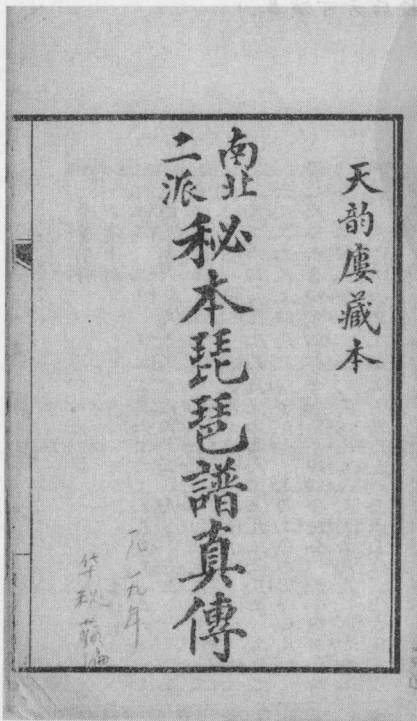 天韵廔藏本
南北
二派
秘本琵琶譜真傳
一八一九年
华秋蘋编